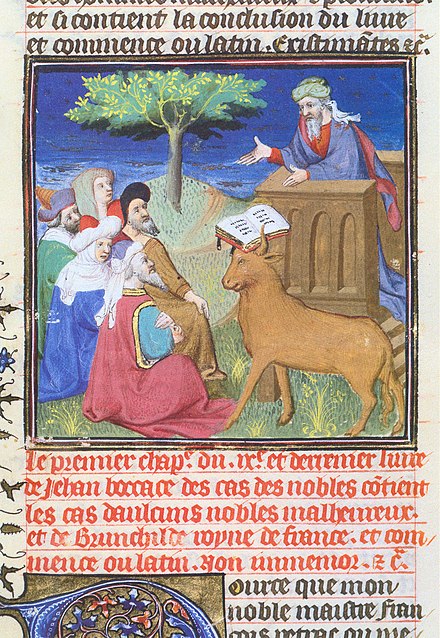 et si contient la conclusion du liure
et commence ou latin. Existimātes &c̃.
le premier chap͛e. du. ix͛e. et derrenier liure
de Jehan boccace des cas des nobles cōtient
les cas daulcuns nobles malheureux.
et de Brunchilde royne de france. et com
mence ou latin. Non inmemor. & c̃.
Ource que mon
noble maistre fran